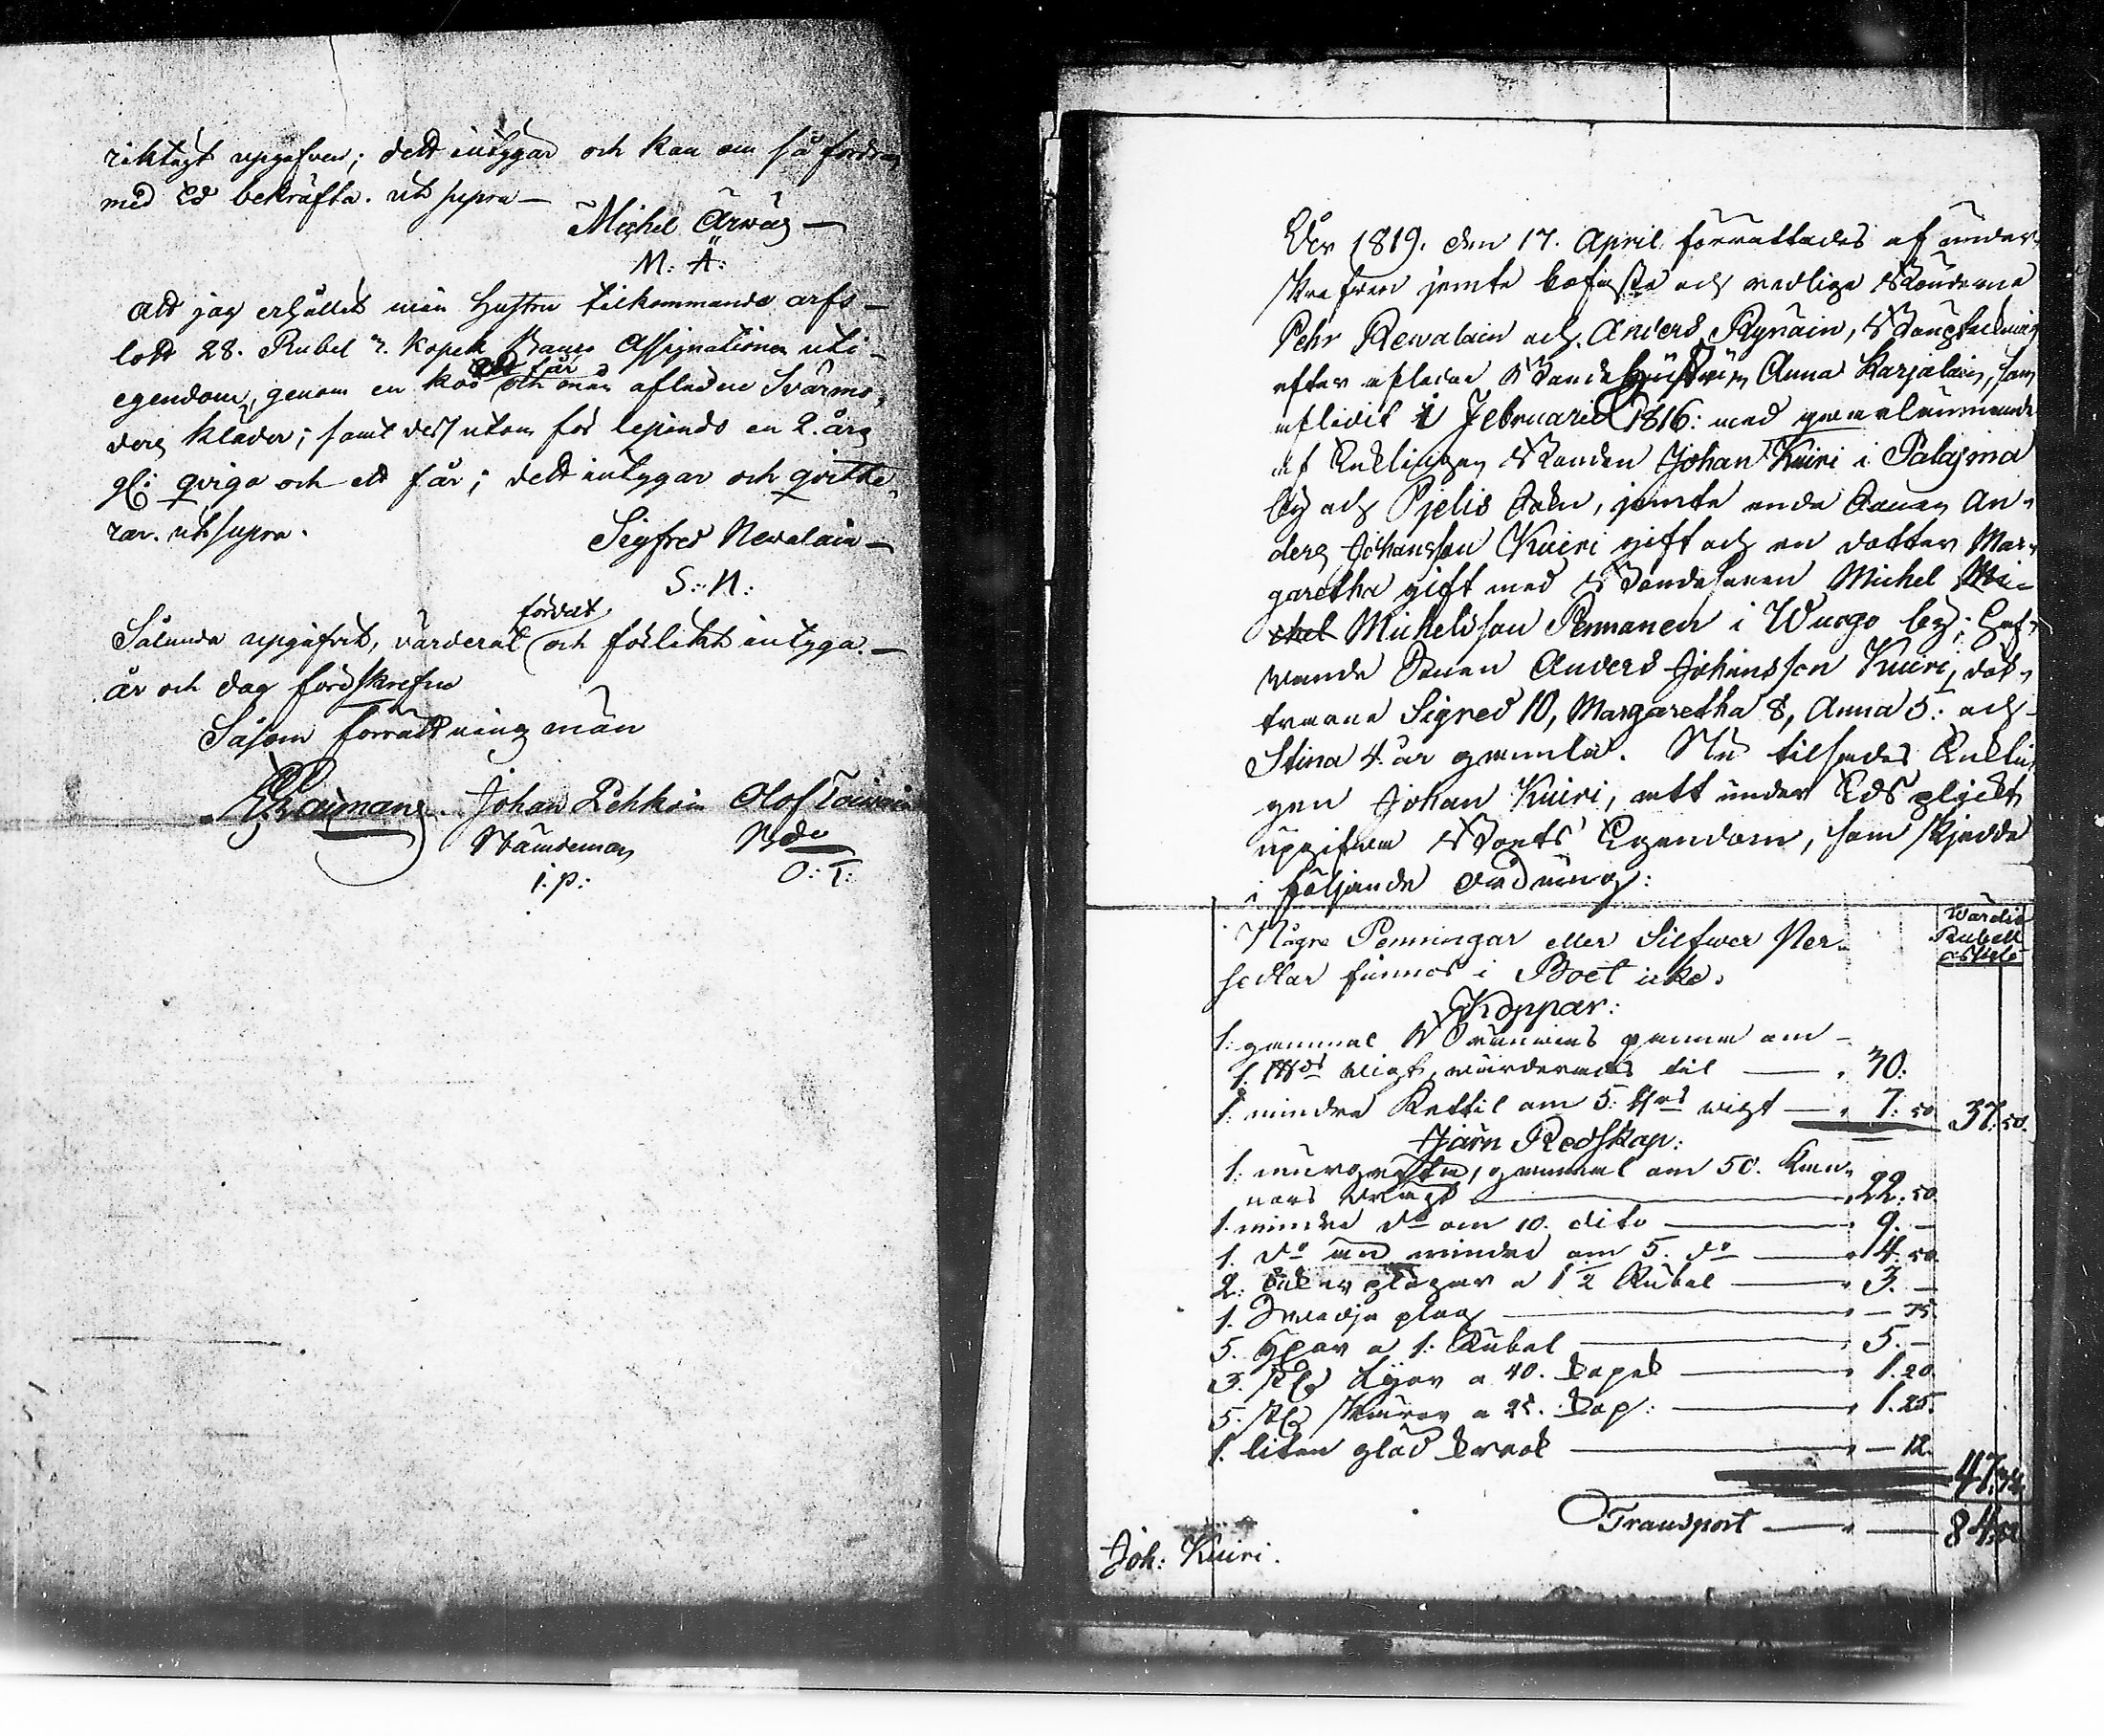 riktigt upgifven; dett intygar och kan om så fordras
med Ed bekräfta. ut supra —
Michel Ärwäs —
M: Ä:
Att jag erhållit min Hustru tilkommande arfs-
lott 28. Rubel 7. Kopek Banco Assignationer uti
egendom, genom en ko ett får och min aflednе Svärmo-
ders kläder; samt dessutom för lejendo en 2. års
gl: qviga och ett får; dett intygar och qvitte-
rar. ut supra.
Sigfred Newalain —
S: N:
Sålunda upgifvit, värderat fördelt och förlikt intyga. —
år och dag förr skrefne
Såsom förrättningsmän
Johan Pehkoin Olof Taiwain
Nämdeman Bde
I. P: O: T:
År 1819. den 17. April förrättades af under-
skrefven jemte bofaste och redlige Bönderne
Pehr Rewalain och Anders Rynäin, Bouptekning
efter aflednе Bonde Hustrun Anna Karjalain, som
aflidit i Februarii 1816: med qvarlämmande
af Enklingen Bonden Johan Kuiri i Palajma
by och Pjelis Sokn, jemte enda Sonen An-
ders Johansson Kuiri gift och en dotter Mar-
garetha gift med Bondesonen Michel Mi-
chel Michelsson Pennanen i Wuogo by; Haf-
wande Sonen Anders Johansson Kuiri, döt-
trarne Signed 10, Margaretha 8, Anna 5: och
Stina 4. år gamla. Nu tilsades Enklin
gen Johan Kuiri, att under Eds plickt
upgifva Boets Egendom, som skjedde
i följande ordning:
Wärdie
Rubell
Några Penningar eller Silfwer Per-
sedlar finnes i Boet icke.
Koppar:
1: gammal Bränwins panna om
1. vigt, värderades til — 30:
1: mindre Kettil om 5: vigt — 7: 50 37.50.
Järn Redskap:
1: murgryta, gammal om 50. Kan-
nors — 22. 50.
1. mindre do om 10. dito — 9. —
1. do än mindre om 5. do — 4. 50.
2: åker plogar a 1 1/2 Rubel — 3. —
1. Swedje plog — — 75.
5. Yxor a 1: Rubel — 5. —
3. st lijor a 40. kopek — 1. 20
5. st skäror a 25. kop: — 1. 25.
1. liten glöd krook — — 12.
47.32.
Transport — 84.82
Joh: Kuiri.